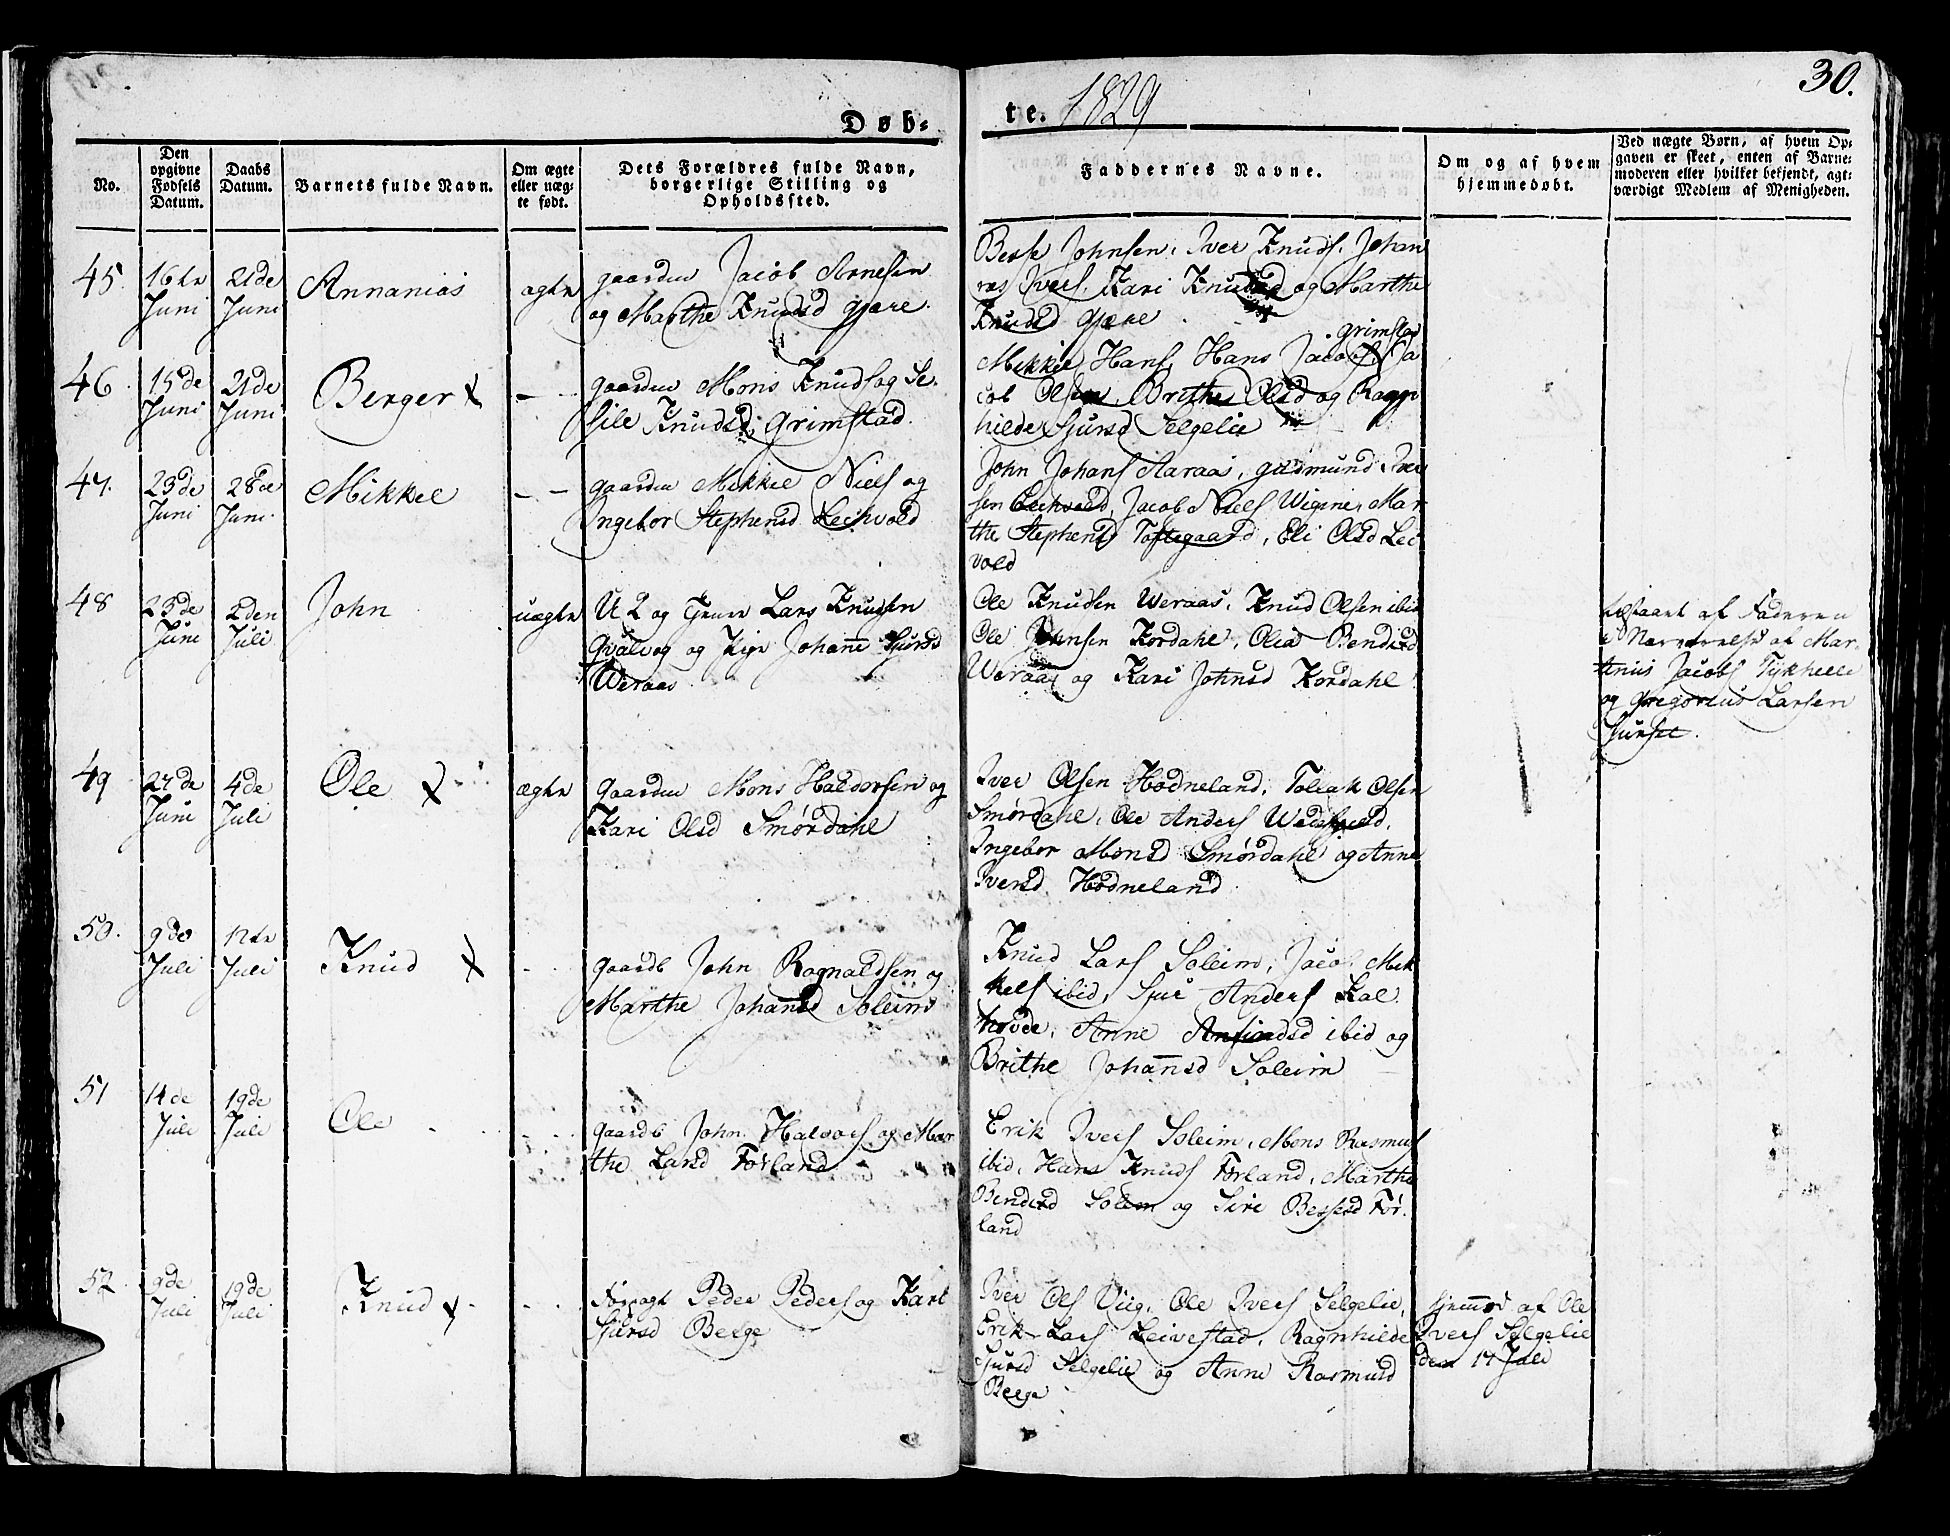 Døb-
te. 1829
30.
No.
Den opgivne Fødsels Datum.
Daabs Datum.
Barnets fulde Navn.
Om ægte eller uægte født.
Dets Forældres fulde Navn, borgerlige Stilling og Opholdssted.
Faddernes Navne.
Om og af hvem hjemmedøbt.
Ved uægte Børn, af hvem Opgaven er skeet, enten af Barnemoderen eller hvilket bekjendt, agtværdigt Medlem af Menigheden.
45.
16te Juni
21de Juni
Annanias
ægte
gaardm Jacob Arnesen
og Marthe Knudsd gjære.
Besse Johnsen, Iver Knuds. Johan
nes Ivers, Kari Knudsd og Marthe
Knudsd gjære
46.
15de Juni
21de Juni
Berger x
- -
gaardm Mons Knuds og Se-
sile Knudsd. Grimstad.
Grimstad
Mikkel Hans, Hans Jacobs, Ja
cob Olsen, Brithe Olsd og Ragn
hilde Sjursd Selgelie
47.
23de Juni
28de Juni.
Mikkel
- -
gaardm Mikkel Niels og
Ingebor Stephensd Leihvold
John Johans Aaraas, gudmund Iver
sen Leihvold, Jacob Niels Wigine, Mar
the Stephensd Toftegaard, Eli Olsd Lei
vold
48
23de Juni
2den Juli
John
uægte
U 2 og Lars Knudsen
Qvalvog og Pige Johane Sjursd
Weraas
Ole Knudsen Weraas, Knud Olsen ibid
Ole Johnsen Kordahl, Olia Bendixd
Weraas og Kari Johnsd Kordahl
af Faderen
i Nærværelse af Mar
tinus Jacobs Tykhelle
og Gregorius Larsen
49
27de Juni
4de Juli
Ole x
ægte
Gaardm Mons Haldorsen og
Kari Olsd Smørdahl
Iver Olsen Hodneland, Tollak Olsen
Smørdahl, Ole Anders
Ingebor Monsd Smørdahl og Anne
Iversd Hodneland
50.
9de Juli
12te Juli
Knud x
- -
gaardb John Ragnaldsen og
Marthe Johansd Soleim
Knud Lars Soleim, Jacob Mik
kels ibid, Sjur Anders Kal
hovde, Anne Anfindsd ibid og
Brithe Johansd Soleim
51
14de Juli
19de Juli
Ole
gaardb John Halvors og Mar
the Larsd Førland
Erik Ivers Soleim, Mons Rasmus
ibid, Hans Knuds Førland, Marthe
Bendixd Solem og Siri Bessesd Før-
land
52
9de Juli
19de Juli
Knud x
Peder Peders og Kari
Sjursd Berge
Iver Ols Viig, Ole Ivers Selgelie,
Erik Lars Leivestad, Ragnhilde
Sjursd Selgelie og Anne Rasmusd
Berge
hjemmed af Ole
Ivers Selgelie
den 17 Juli